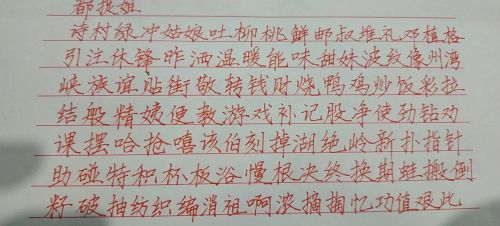 都投姐
诗村绿冲姑娘吐柳桃鲜邮叔堆礼邓植格
引注休锋昨洒温暖能味甜妹波纹像州湾
峡族谊贴街敬转钱财烧鸭鸡炒饭彩拉
结般精姨便教游戏补记股净使劲钻劝
课摆哈抢嘻该伯刻掉湖绝岭新扑指针
助碰特积杯板浴慢根决终换期蛙搬倒
籽破抽纺织编消祖啊浓摘掏忆功值艰此